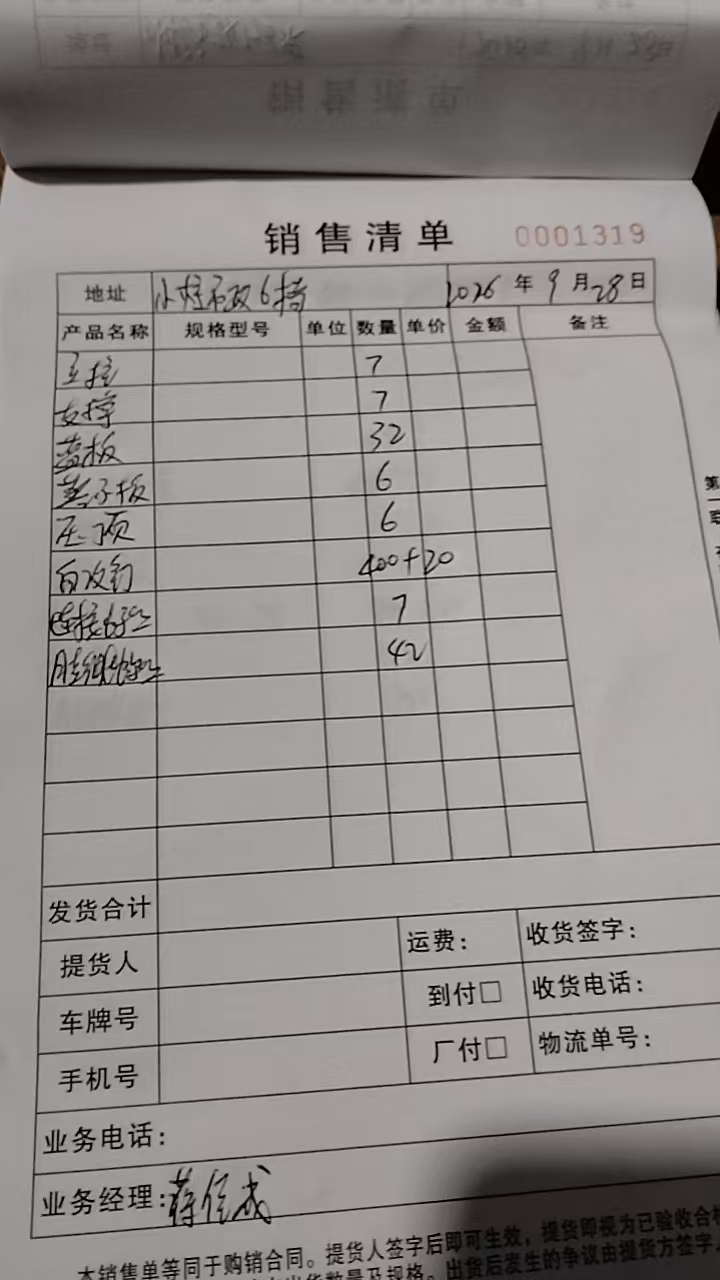 销售清单 0001319
地址 2026 年 9 月 28 日
产品名称 规格型号 单位 数量 单价 金额 备注
立柱 7
支撑 7
盖板 32
板 6
压顶 6
自攻钉 400+20
连接 7
42
发货合计
提货人 运费： 收货签字：
车牌号 到付□ 收货电话：
手机号 厂付□ 物流单号：
业务电话：
业务经理：蒋信成
本销售单等同于购销合同。提货人签字后即可生效，提货即视为已验收合
出货数量及规格。出货后发生的争议由提货方签字